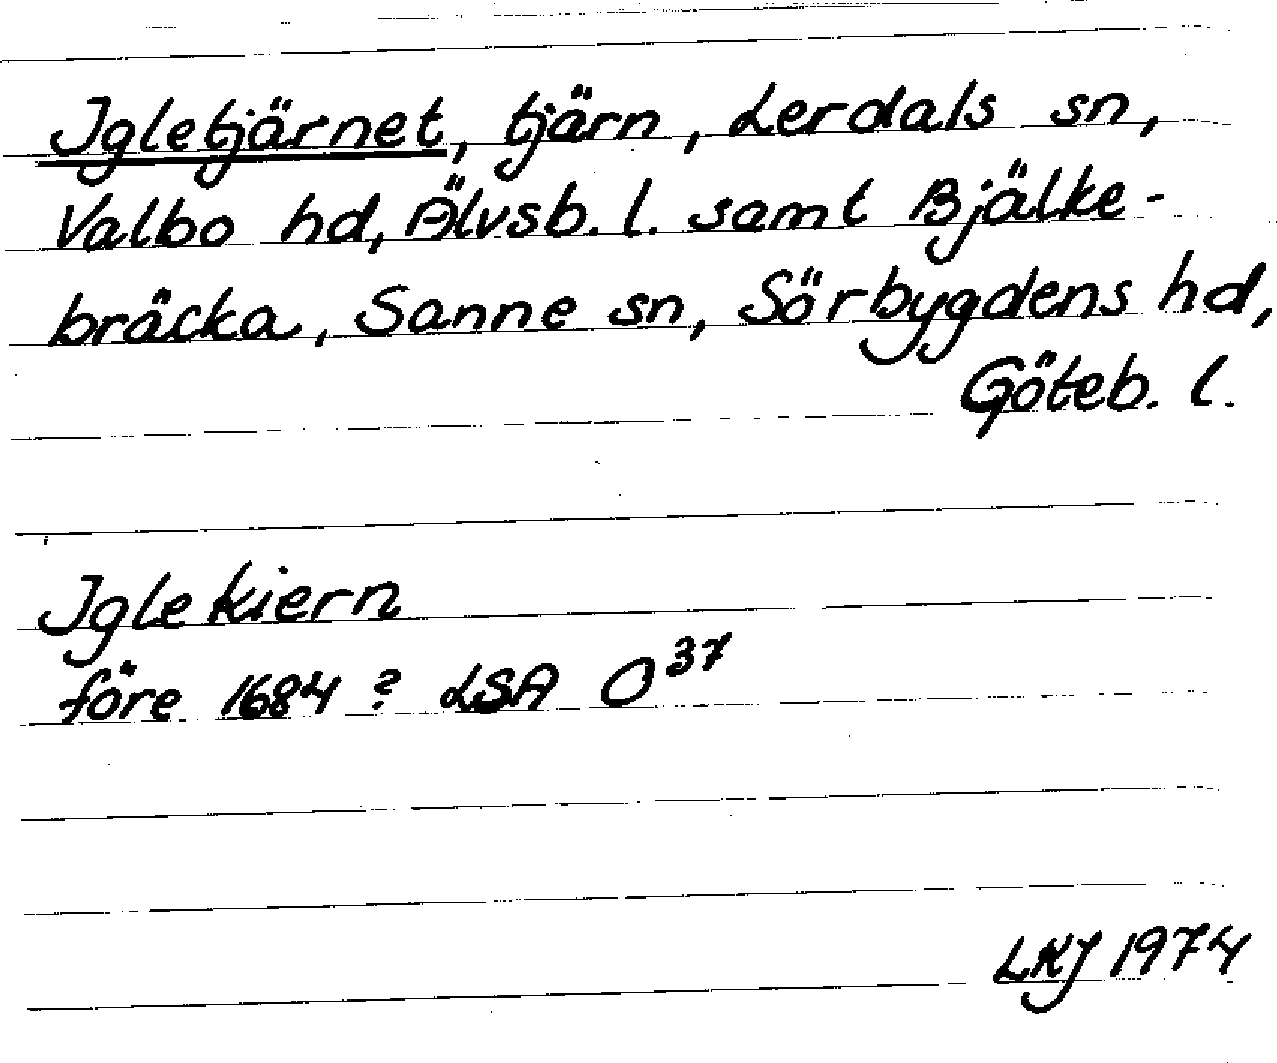 Igletjärnet, tjärn, Lerdals sn,
Valbo hd, Älvsb. l. samt Bjälke-
bräcka, Sanne sn, Sörbygdens hd,
Göteb. l.
Iglekiern
före 1684? LSA O³⁷
LKJ 1974